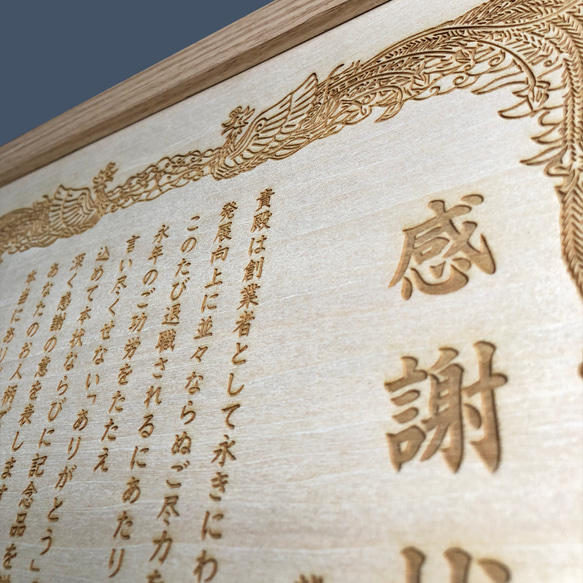 感謝
貴殿は創業者として永きにわ
発展向上に並々ならぬご尽力を
このたび退職されるにあたり
永年のご功労をたたえ
言い尽くせない「ありがとう」
込めて本状ならびに記念品を
深く感謝の意を表します
あなたのお人柄